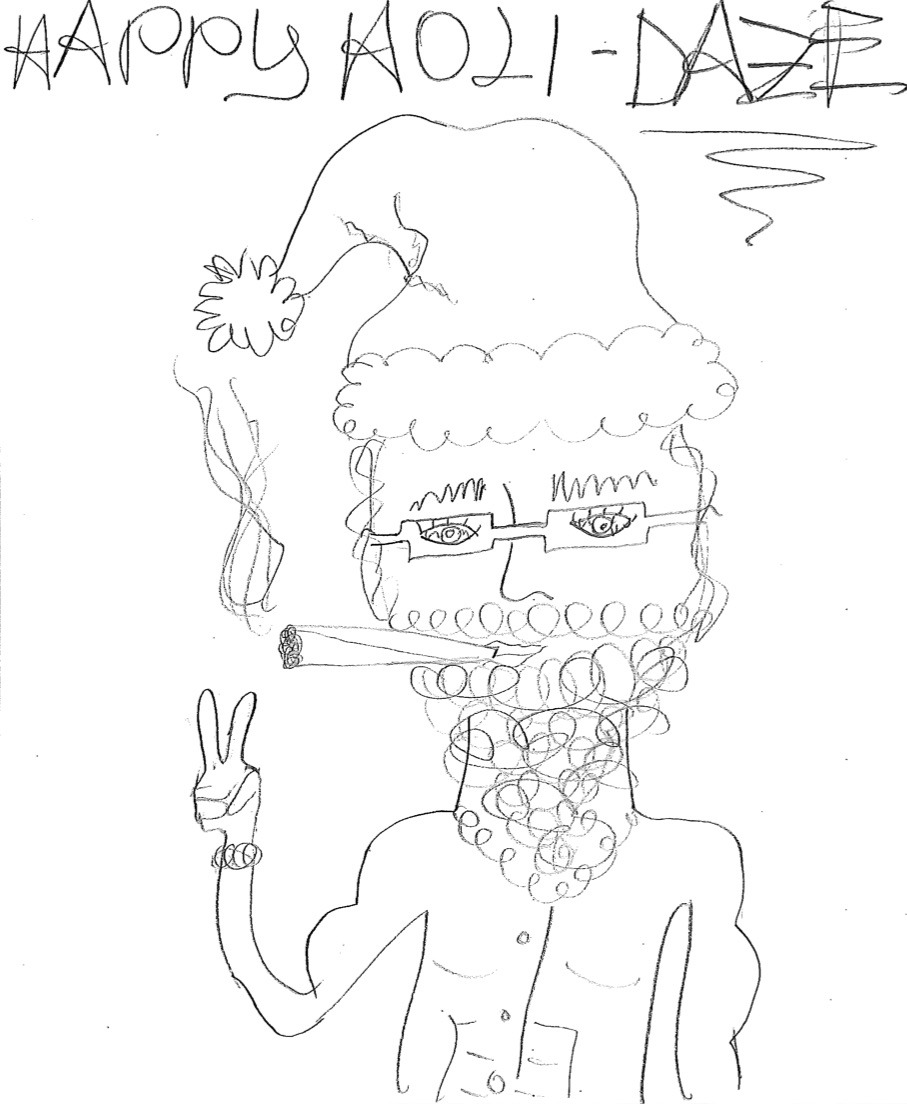 HAPPY HOLI-DAZE